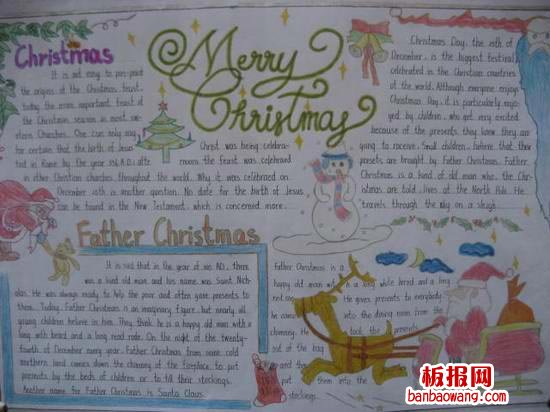 Merry
Christmas
Christmas
It is not easy to pin-point
the origins of the Christmas feast,
today the most important feast of
the Christmas season in most wes-
tern Churches. One can only say
for certain that the birth of Jesus
Christ was being celebra-
ted in Rome by the year
moreover the feast was celebrated
in other Christian churches throughout the world. Why it was celebrated on
December 25th is another question. No date for the birth of Jesus
can be found in the New Testament, which is concerned more
Christmas Day, the 25th of
December, is the biggest festival
celebrated in the Christian countries
of the world. Although everyone enjoys
Christmas Day, it is particularly enjo-
yed by children, who get very excited
because of the presents they know they are
going to receive. Small children believe that their
presents are brought by Father Christmas. Father
Christmas is a kind of old man who, the Chi-
ldren are told, lives at the North Pole. He
travels through the sky on a sleigh
Father Christmas
It is said that in the year of 300 AD, there
was a kind old man and his name was Saint Nich-
olas. He was always ready to help the poor and often gave presents to
them. Today, Father Christmas is an imaginary figure, but nearly all
young children believe in him. They think he is a happy old man with a
long with beard and a long read robe. On the night of the twenty-
fourth of December every year, Father Christmas from some cold
northern land comes down the chimney of the fireplace to put
presents by the beds of children or to fill their stockings.
Another name for Father Christmas is Santa Claus.
Father Christmas is a
happy old man with a long white beard and a long
red He gives presents to everybody
he comes into the dining room from the
chimney. He took the presents
out of the bag
and then put them into the
stockings.
板报网
banbaowang.com